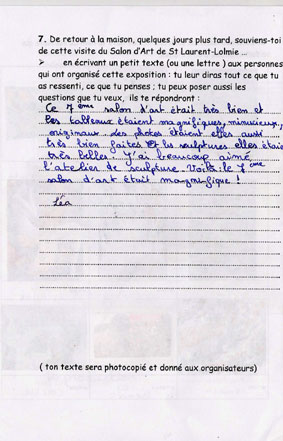 7. De retour à la maison, quelques jours plus tard, souviens-toi
de cette visite du Salon d'Art de St Laurent-Lolmie ...
➢ en écrivant un petit texte (ou une lettre ) aux personnes
qui ont organisé cette exposition : tu leur diras tout ce que tu
as ressenti, ce que tu penses ; tu peux poser aussi les
questions que tu veux, ils te répondront :
Ce 7ème salon d'art était très bien et
les tableaux étaient magnifiques, minucieux,
originaux des photos étaient elles aussi
très bien faites et les sculptures elles étais
très belles. J'ai beaucoup aimé
l'atelier de sculpture. Voilà le 7ème
salon d'art était magnifique !
Léa
( ton texte sera photocopié et donné aux organisateurs)